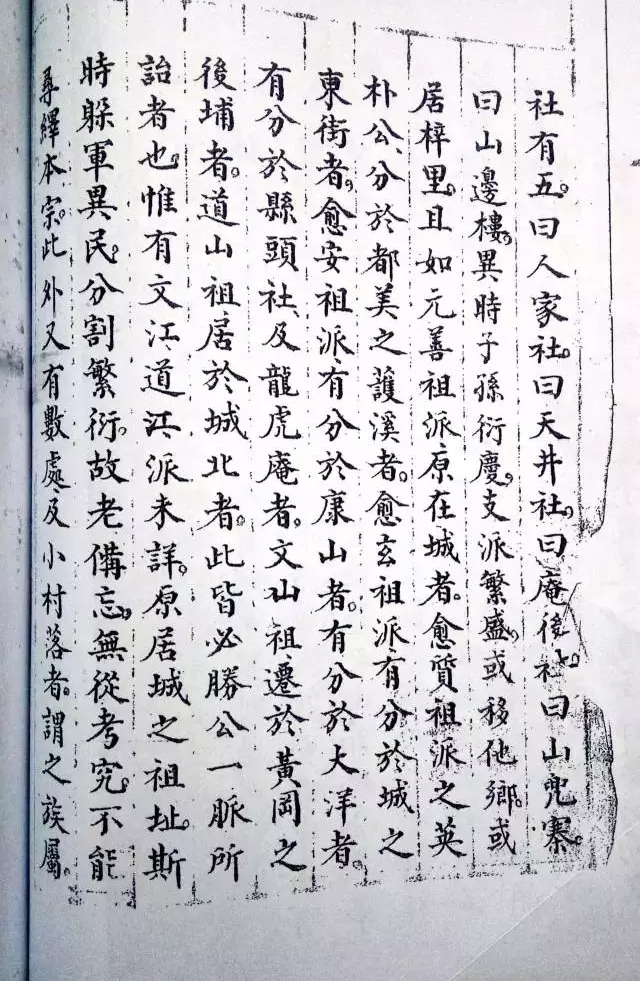 社有五。曰人家社。曰天井社。曰庵後社曰山兜寨。
曰山邊樓。異時子孫衍慶。支派繁盛。或移他鄉。或
居梓里。且如元善祖派原在城者。愈質祖派之英
朴公、分於都美之護溪者。愈玄祖派有分於城之
東街者。愈安祖派有分於康山者。有分於大洋者。
有分於縣頭社、及龍虎庵者。文山祖遷於黃岡之
後埔者。道山祖居於城北者。此皆必勝公一脈所
詒者也。惟有文江道江派未詳。原居城之祖址。斯
時躲軍異民。分割繁衍。故老備忘。無從考究。不能
尋繹本宗。此外又有數處、及小村落者。謂之族屬。